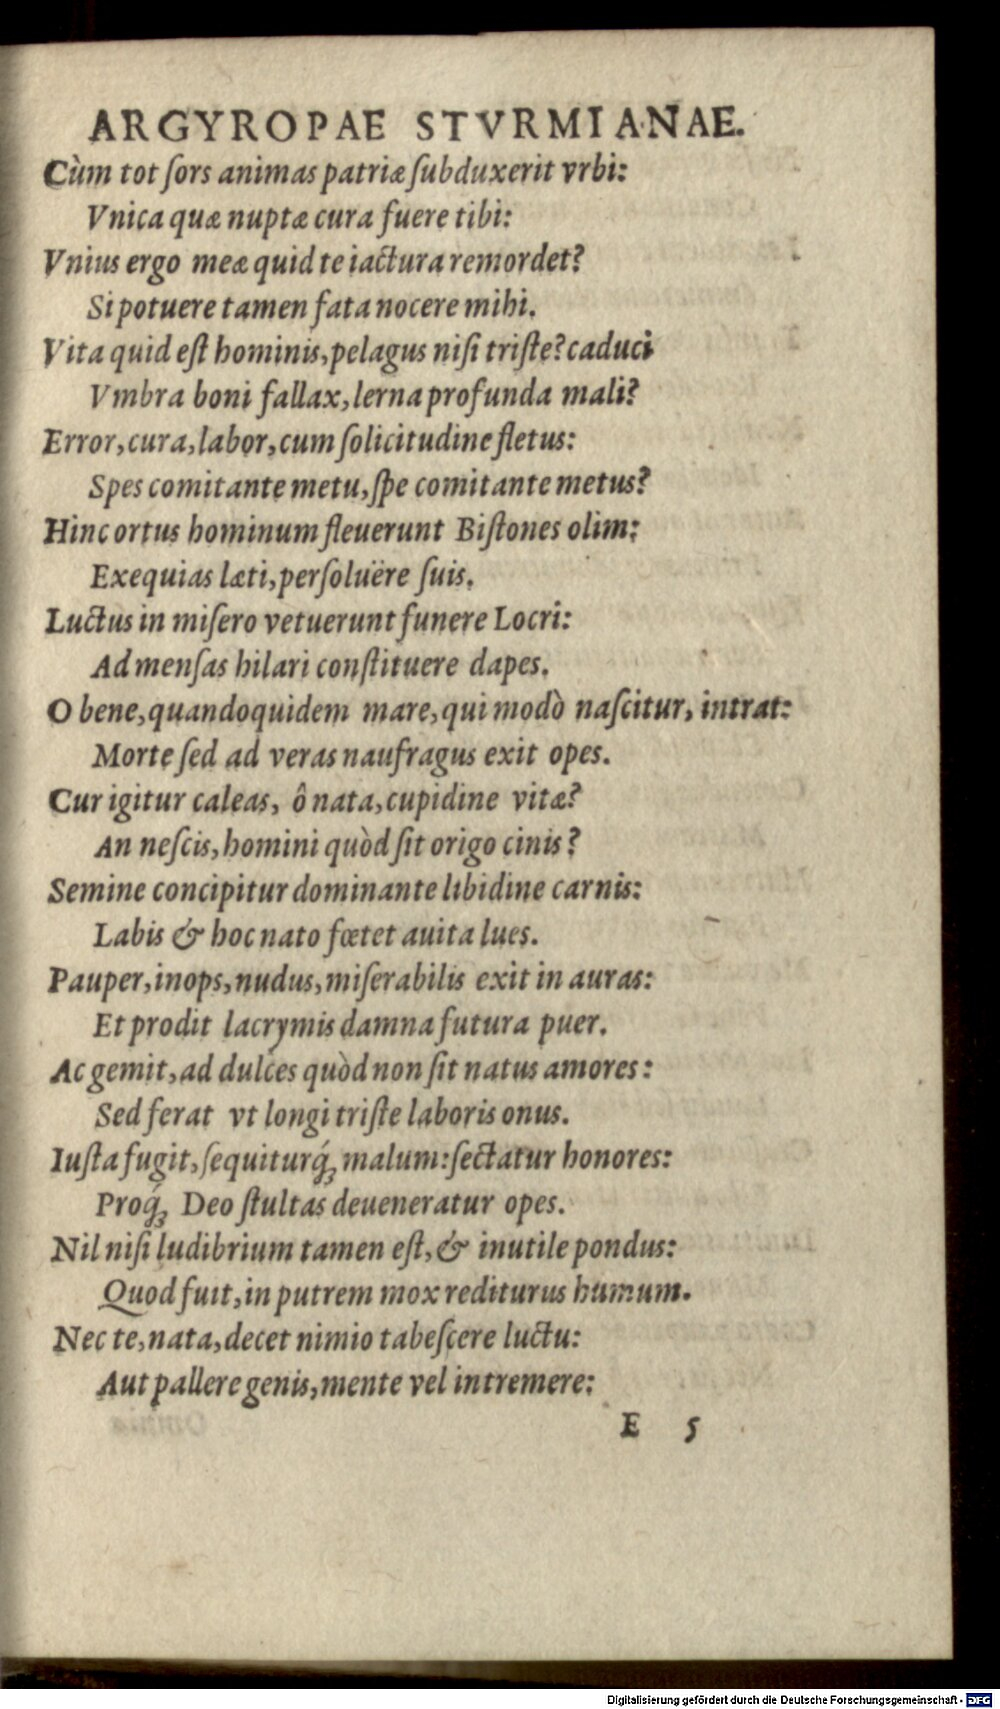 ARGYROPAE STVRMIANAE.
Cùm tot ſors animas patriæ ſubduxerit vrbi:
Vnica quæ nuptæ cura fuere tibi:
Vnius ergo meæ quid te iactura remordet?
Si potuere tamen fata nocere mihi.
Vita quid eſt hominis, pelagus niſi triſte? caduci
Vmbra boni fallax, lerna profunda mali?
Error, cura, labor, cum ſolicitudine fletus:
Spes comitante metu, ſpe comitante metus?
Hinc ortus hominum fleuerunt Biſtones olim:
Exequias læti, perſoluëre ſuis.
Luctus in miſero vetuerunt funere Locri:
Ad menſas hilari conſtituere dapes.
O bene, quandoquidem mare, qui modò naſcitur, intrat:
Morte ſed ad veras naufragus exit opes.
Cur igitur caleas, ô nata, cupidine vitæ?
An neſcis, homini quòd ſit origo cinis?
Semine concipitur dominante libidine carnis:
Labis & hoc nato fœtet auita lues.
Pauper, inops, nudus, miſerabilis exit in auras:
Et prodit lacrymis damna futura puer.
Ac gemit, ad dulces quòd non ſit natus amores:
Sed ferat vt longi triſte laboris onus.
Iuſta fugit, ſequiturq́; malum: ſectatur honores:
Proq́; Deo ſtultas deueneratur opes.
Nil niſi ludibrium tamen eſt, & inutile pondus:
Quod fuit, in putrem mox rediturus humum.
Nec te, nata, decet nimio tabeſcere luctu:
Aut pallere genis, mente vel intremere:
E 5
Digitalisierung gefördert durch die Deutsche Forschungsgemeinschaft - DFG